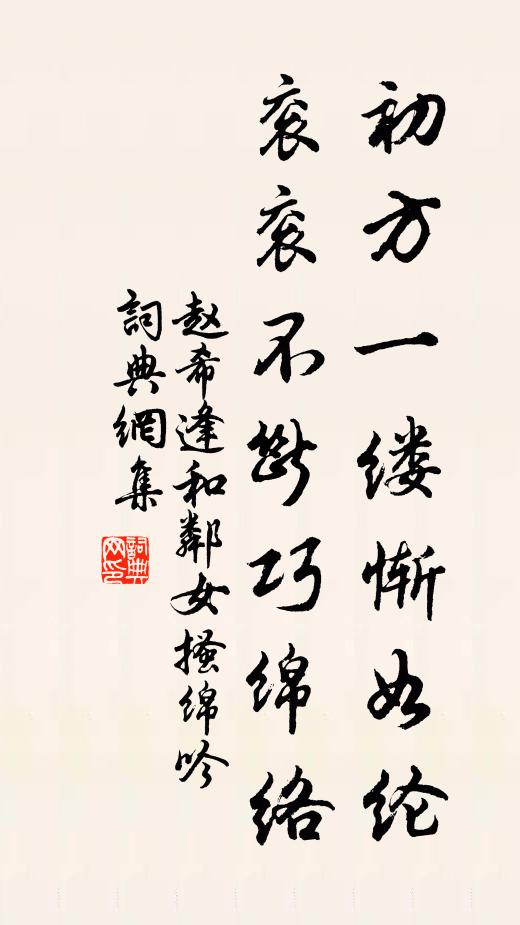 初方一缕惭如纶
衮衮不断巧绵络
赵希逢和鄰女搔绵吟
詞典網集
詞典网印